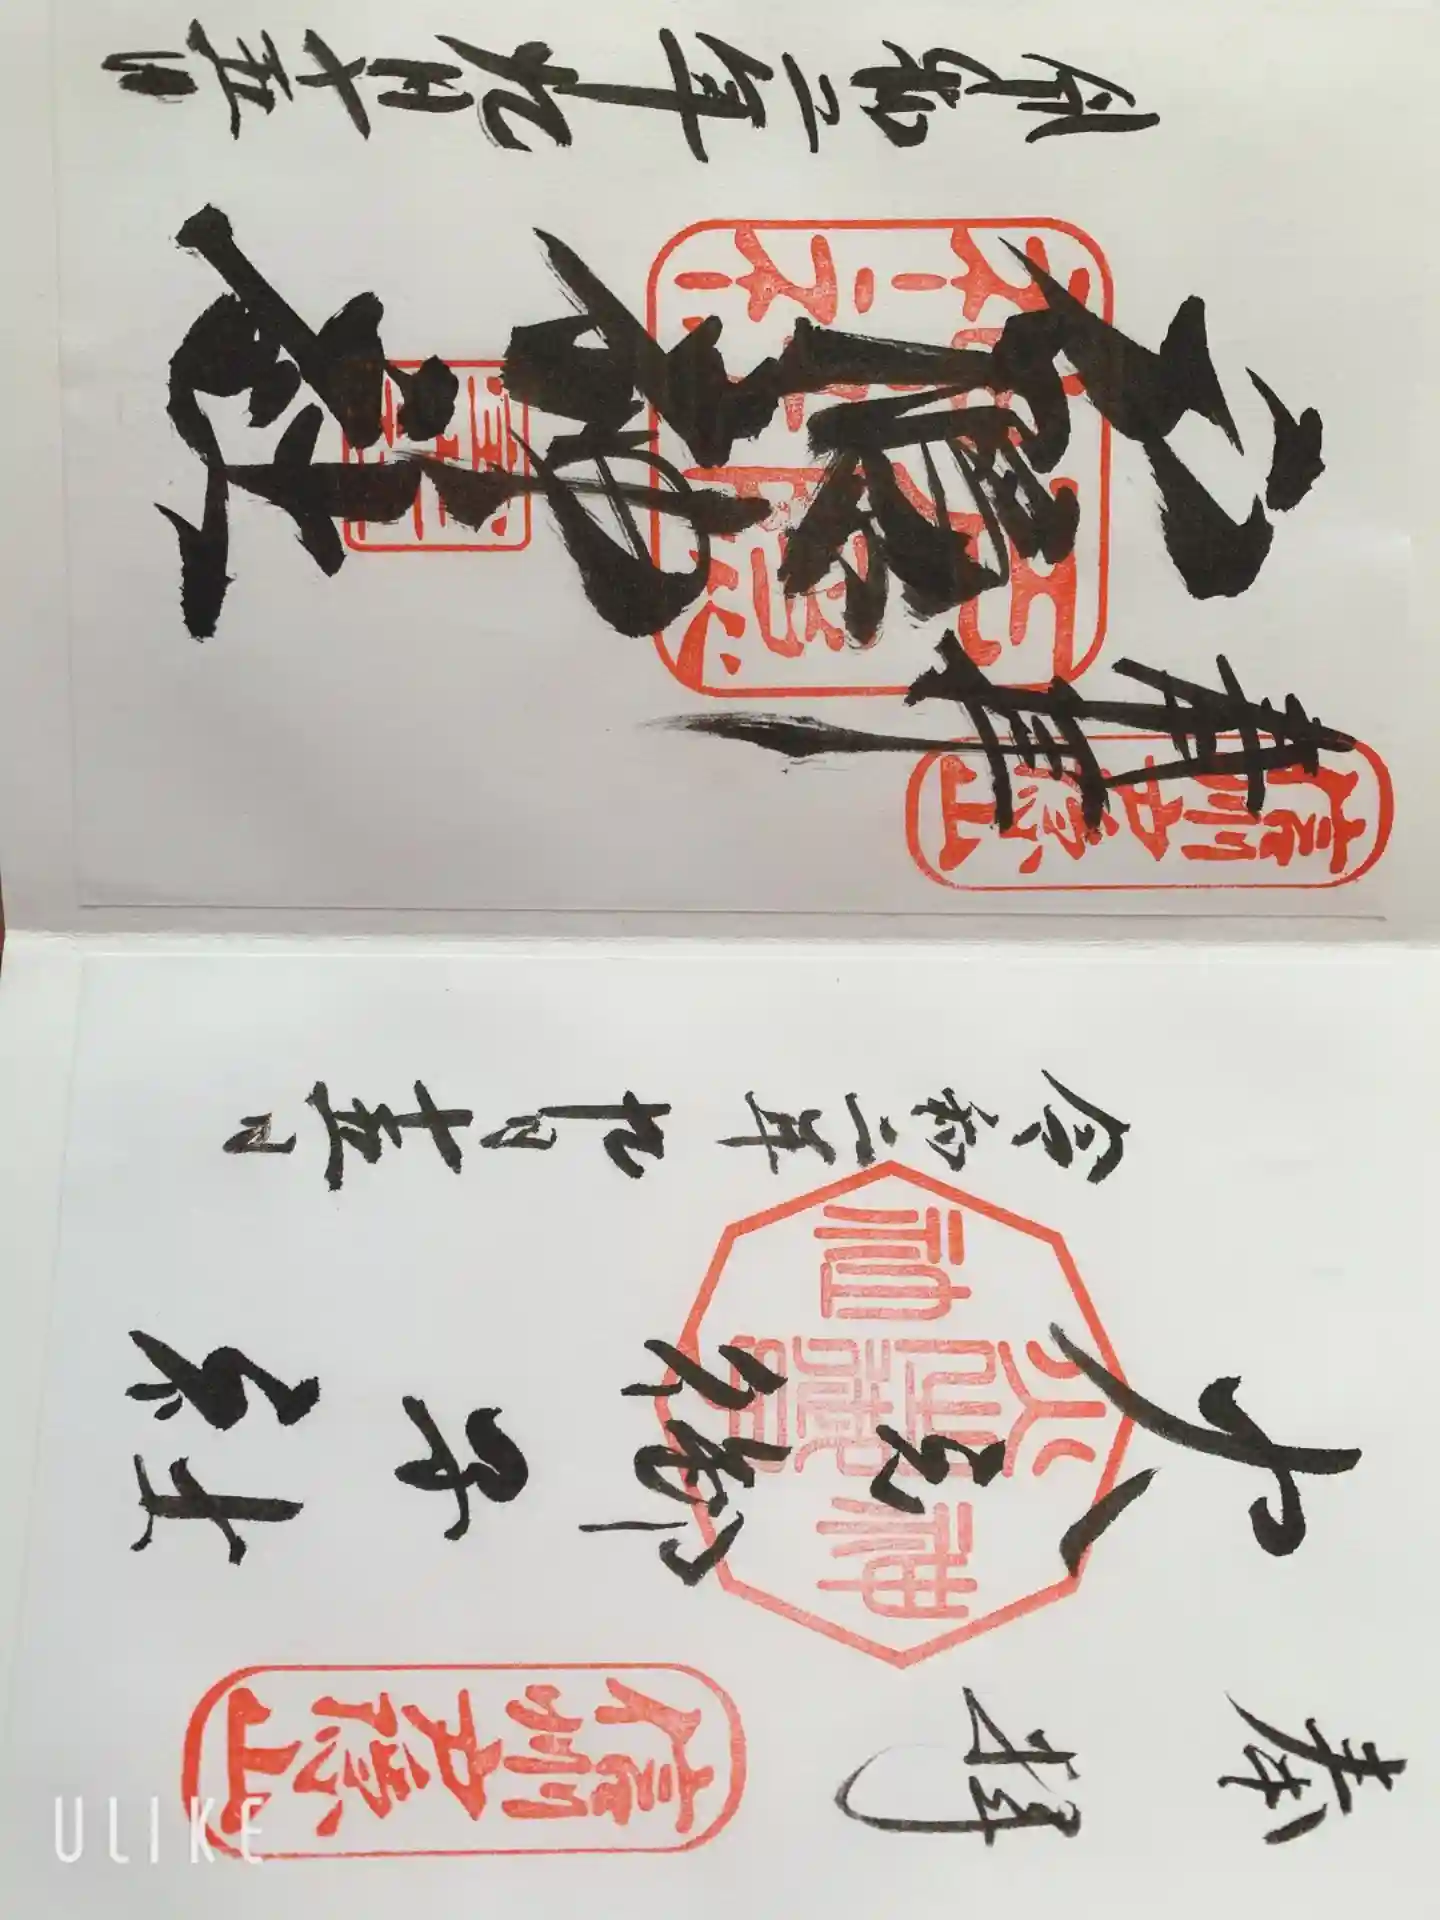 奉拝
信州戸隠山
火之御子社
令和二年九月十五日
奉拝
信州戸隠山
戸隠神社
令和二年九月十五日
ULIKE